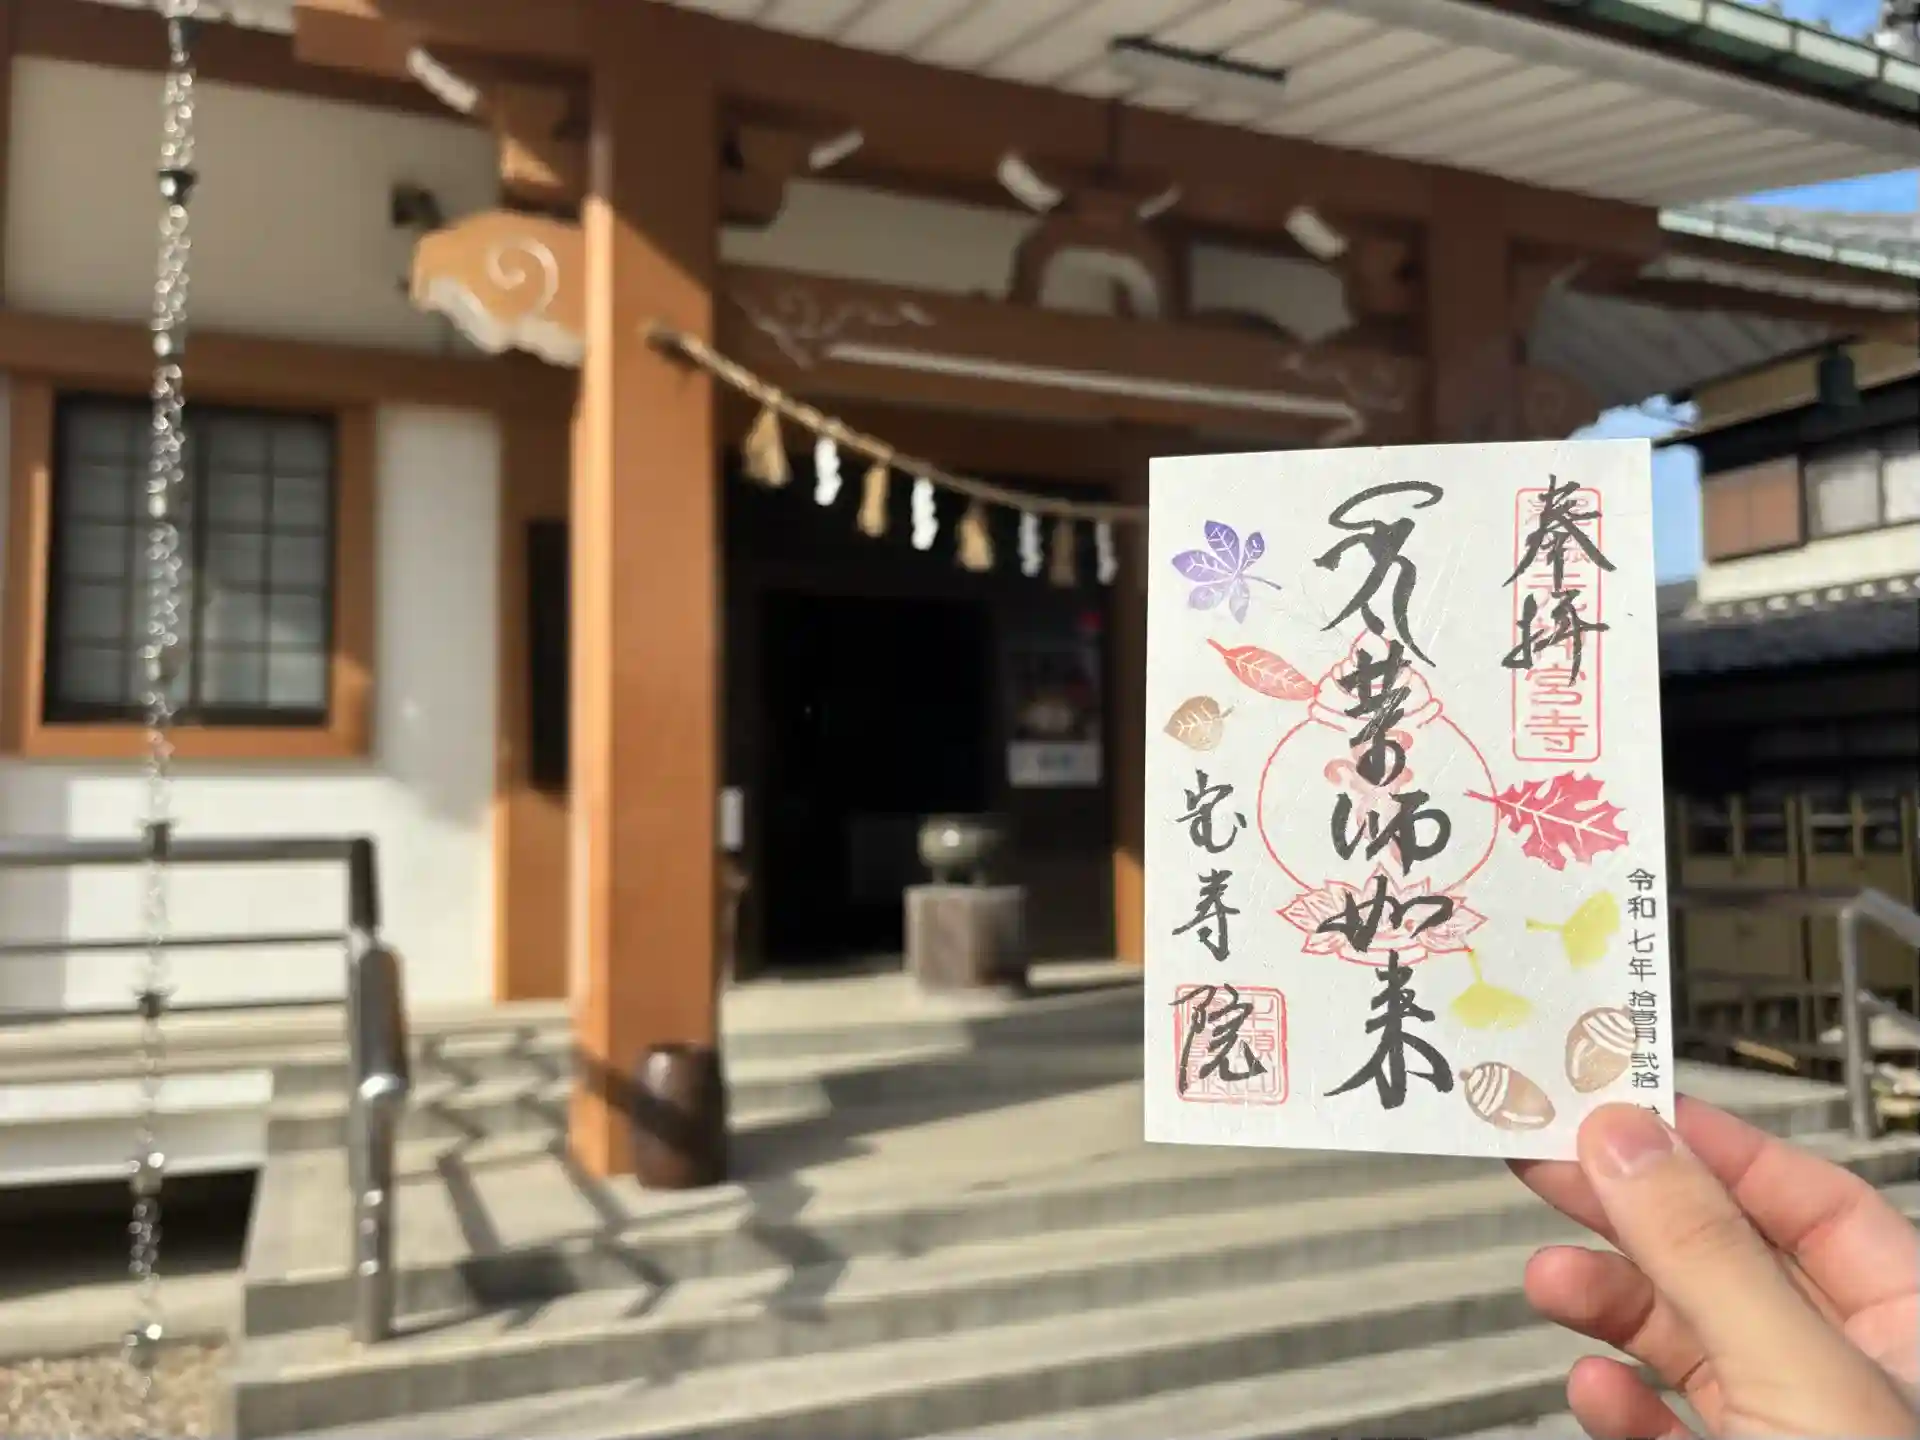 奉拝
元神宮寺
薬師如来
宝寿院
令和七年拾壱月弐拾